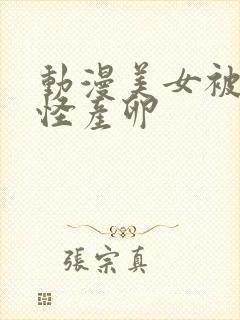 動漫美女被
怪產卵
張宗真